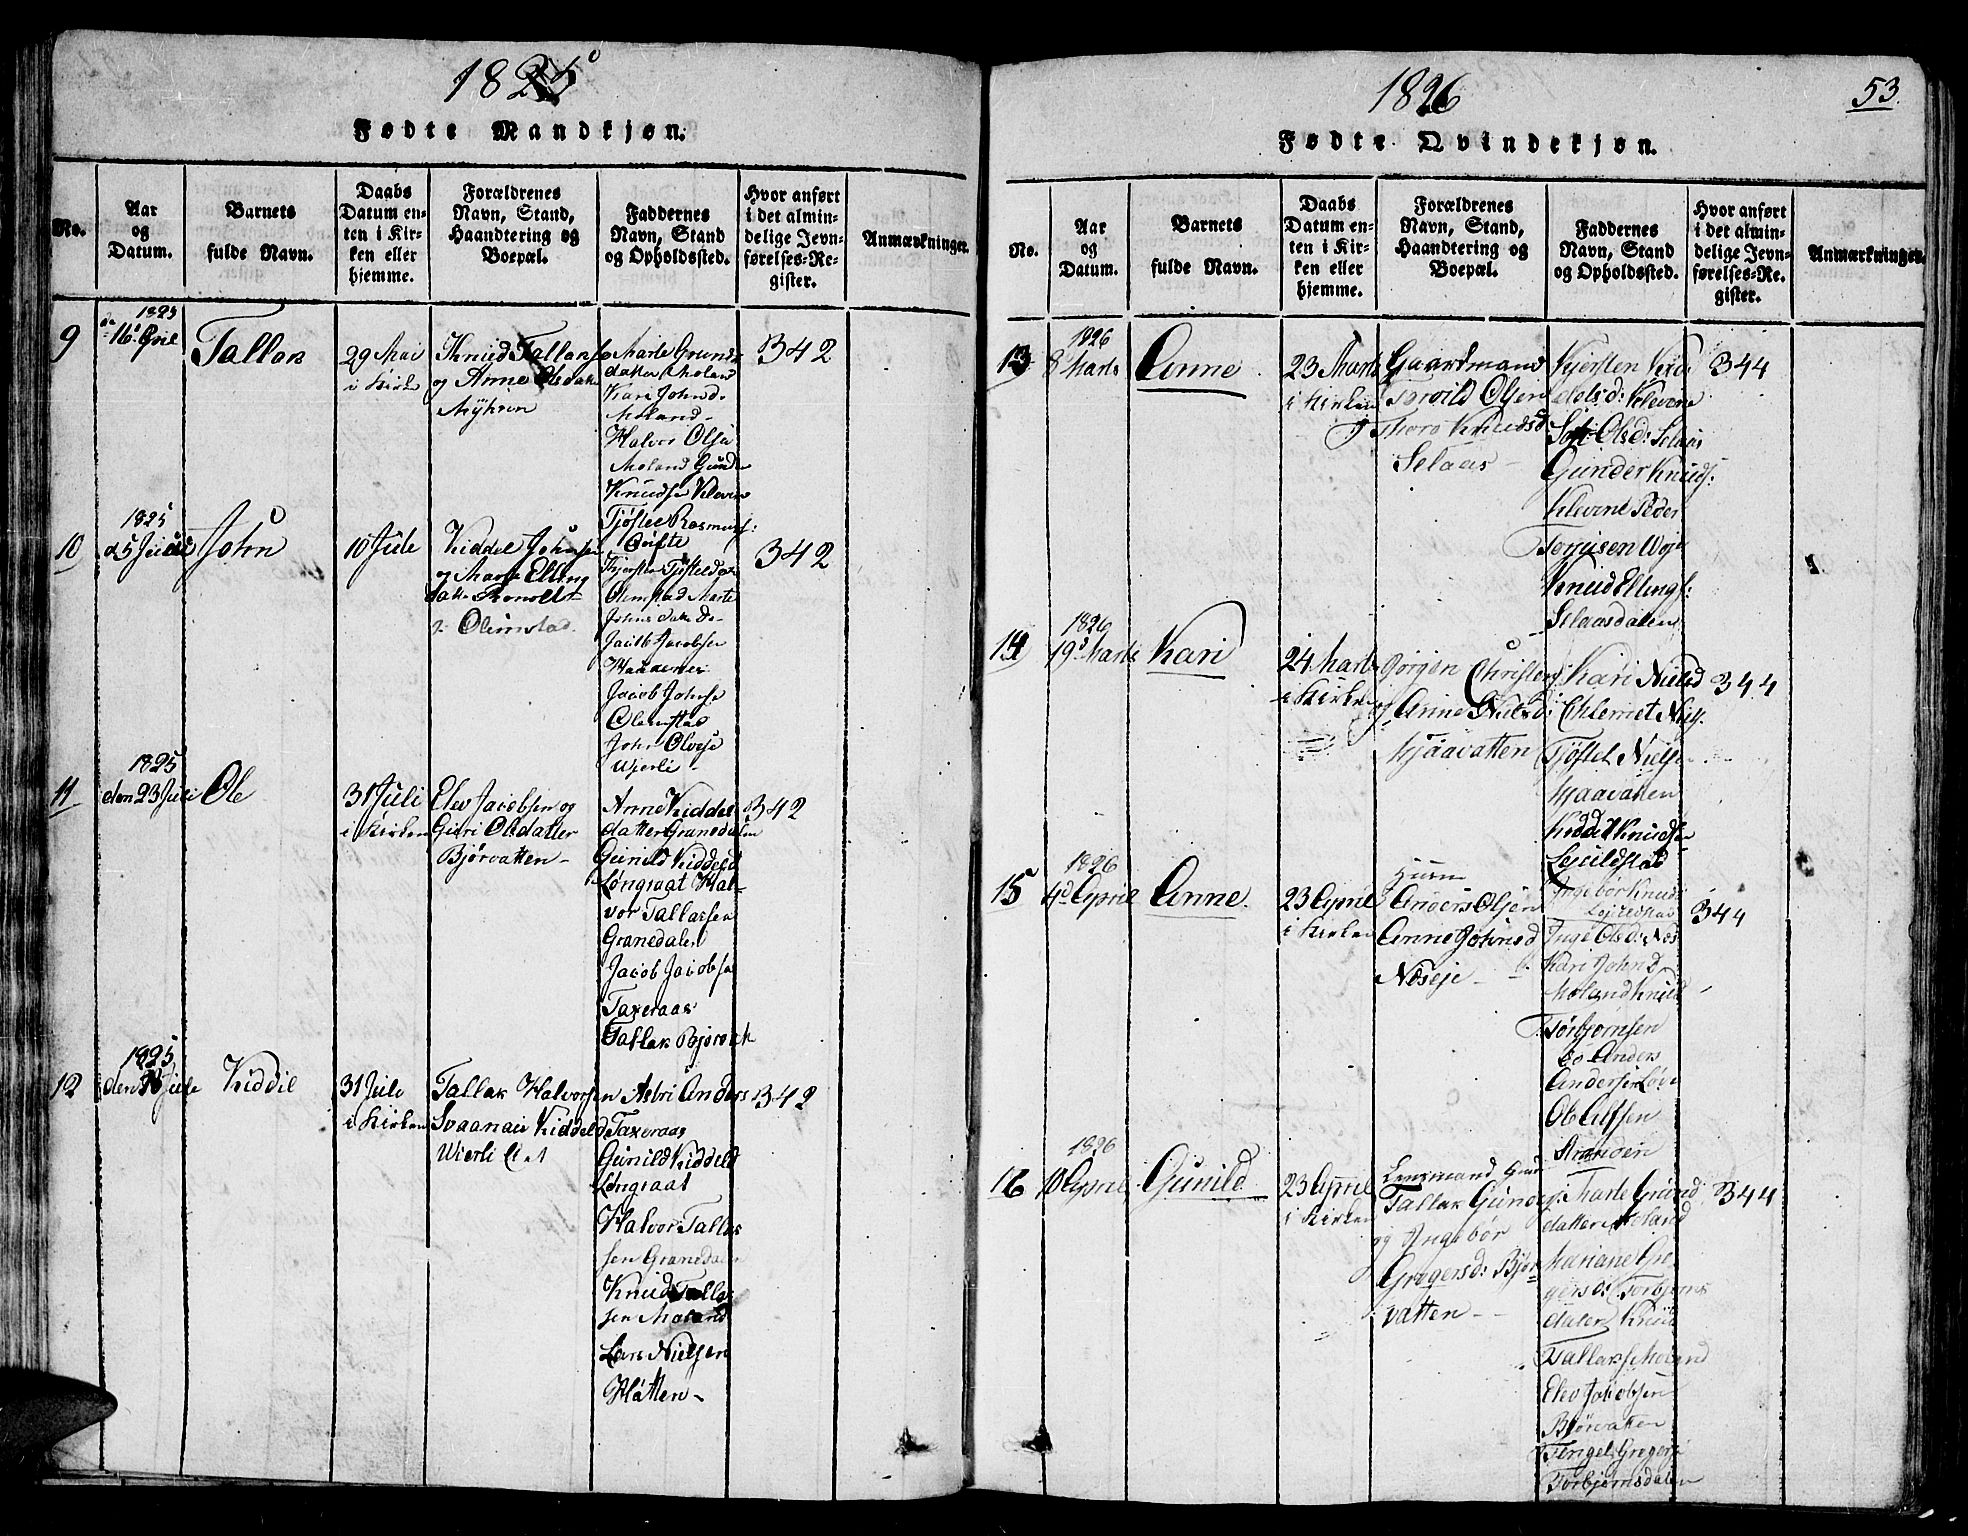 1825
Fødte Mandkjøn.
No.
Aar
og
Datum.
Barnets
fulde Navn.
Daabs
Datum en-
ten i Kir-
ken eller
hjemme.
Forældrenes
Navn, Stand,
Haandtering og
Boepæl.
Faddernes
Navn, Stand
og Opholdssted.
Hvor anført
i det almin-
delige Jevn-
førelses-Re-
gister.
Anmærkninger.
9
1825
Tallak
29 Mai
i Kirken
Knud Tallaks
og Anne Olsdatter
Myhren
Marte Grunds
datter Moland
Kari Johnd.
Moland
Halvor Olsen
Moland Gunder
Knudsen Kleven
Tjøstel Rasmuss:
342
10
1825
d 5 Juli
John
10 Jule
Kiddel Johnsen
og Marte Elling
datter
Olimstad
Kjersten Tjøstelds
Olimstad Marte
Johns datter
Jacob Jacobsen
Jacob Johnsen
Olimstad
John Olvse
Wierli
342
11
1825
den 23 Juli
Ole
31 Juli
i Kirken
Elev Jacobsen og
Guri Olsdatter
Bjørvatten
Anne Kiddels
datter Granedalen
Gunild Kiddelsd
Løngraat Hal-
vor Tallaksen
Granedalen
Jacob Jacobsen
Taxeraas
Tallak Bjørvat
342
12
1825
den Jule
Kiddil
31 Jule
i Kirken
Tallak Halvorsen
Svaanau Kiddelsd
Wierli
Asbri Anders
Taxeraas
Gunild Kiddelsd
Longraat
Halvor Tallak
sen Granedalen
Knud Tallak
sen Moland
Lars Nielsen
Hatten
342
1826
53
Fødte Qvindekjøn.
No.
Aar
og
Datum.
Barnets
fulde Navn.
Daabs
Datum en-
ten i Kir-
ken eller
hjemme.
Forældrenes
Navn, Stand,
Haandtering og
Boepæl.
Faddernes
Navn, Stand
og Opholdssted.
Hvor anført
i det almin-
delige Jevn-
førelses-Re-
gister.
Anmærkninger.
13
1826
8 Marts
Anne
23 Marts
i Kirken
Gaardmand
Torvild Olsen
Thoro Knudsd
Selaas
Kjersten Kid
delsd: Klevene
Olsd: Selaas
Gunder Knuds:
Klevene Peder
Terjusen Woje
Knud Ellings:
Selaasdalen
344
14
1826
19 Marts
Kari
24 Marts
i Kirken
Jørgen Christens
og Anne Nielsd:
Hjaavatten
Kari Nielsd
Chlemet Niels.
Tjøstel Nielsen
Hjaavatten
Kiddel Knudsen
Lejuldstad
Ingebor Knuds
344
15
1826
4 April
Anne
23 April
i Kirken
Huusm
Anders Olsen
Anne Johnsd
Næseje
Inge Olsd: Næs
Kari Johnd
Moland Knud
Torbjørnsen
Anders
Andersen Løve
Ole Alfsen
Stranden
344
16
1826
10 April
Gunild
23 April
i Kirken
Lensmand
Tallak Gunders
og Ingebør
Gregersd: Bjør
vatten
Marte Grund
datter Moland
Mariane Gre
gersd: Torbjørns
dalen Knud
Tallaks Moland
Elev Jacobsen
Bjørvatten
Tengel Gregers
Torbjørnsdalen
344